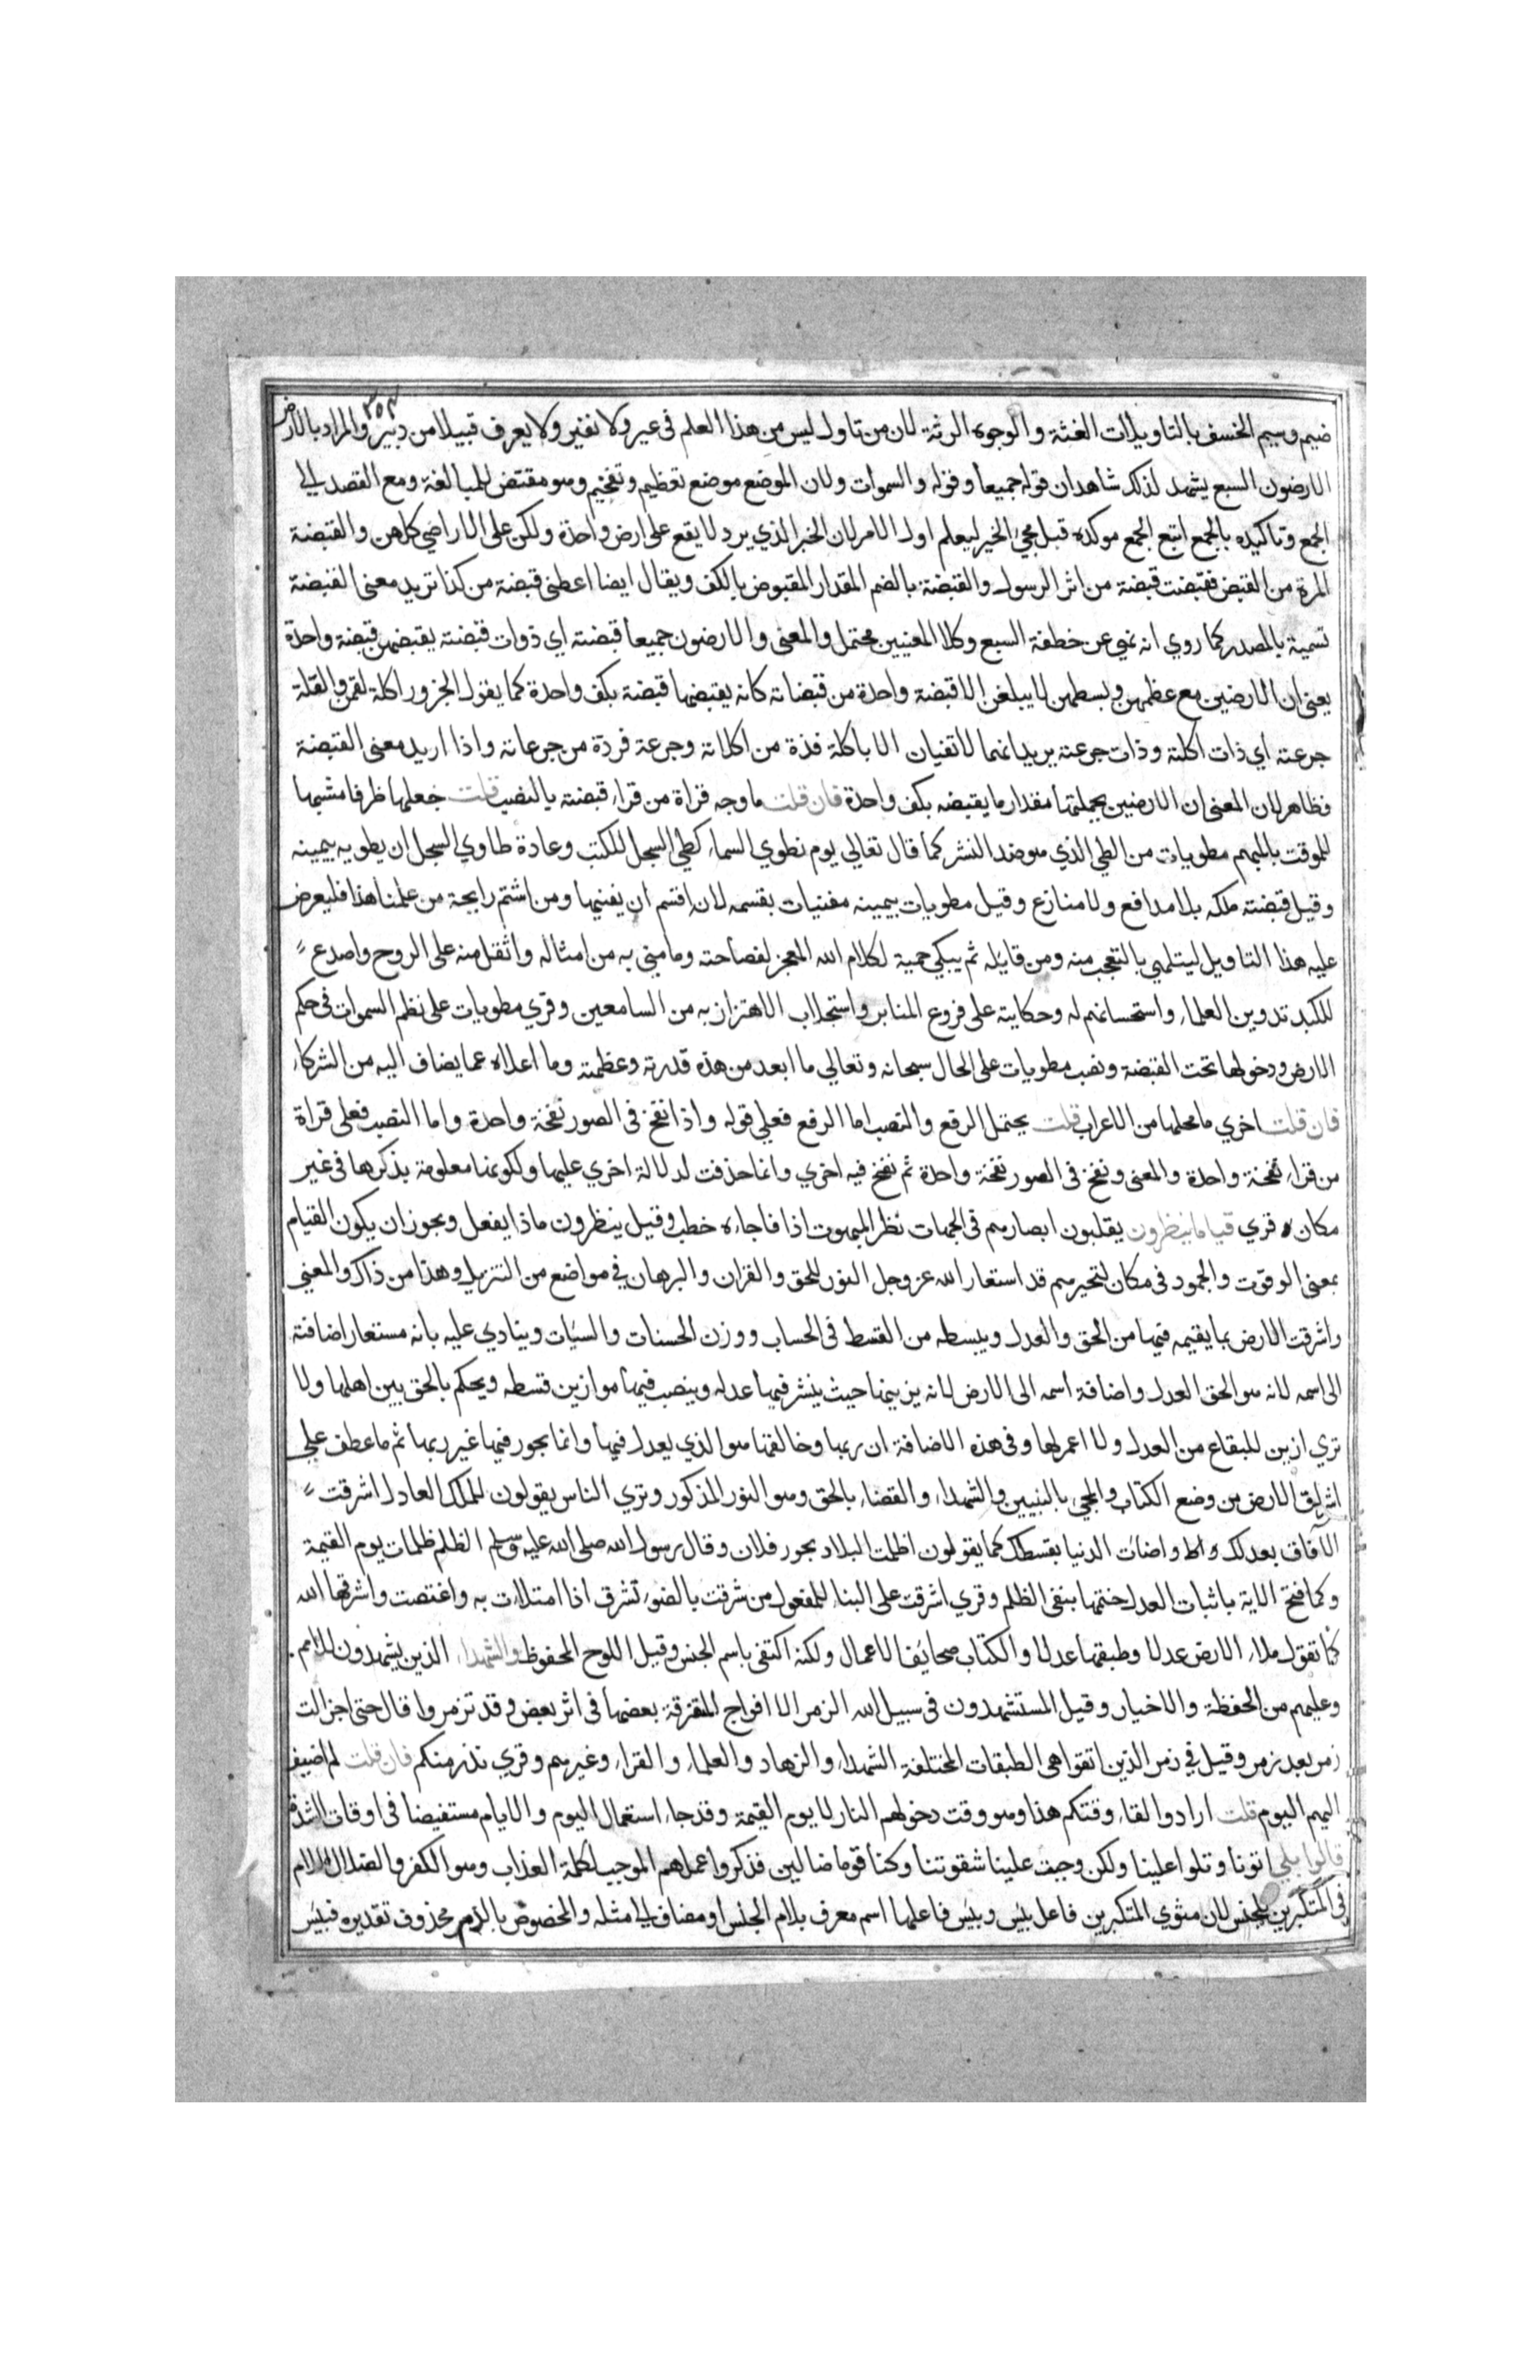 ٣٥٣
ضيم وسيم الخسف بالتاويلات الغثة والوجوه الرثة لان من تاول ليس من هذا العلم فى عير ولا نفير ولا يعرف قبيلا من دبير والمراد بالارض
الارضون السبع يشهد لذلك شاهدان قوله جميعا وقوله والسموات ولان الموضع موضع تعظيم وتفخيم وهو مقتض للمبالغة ومع القصد الي
الجمع وتاكيده بالجمع اتبع الجمع موكده قبل مجئ الخبر ليعلم اول الامر لان الخبر الذي يرد لا يقع على ارض واحدة ولكن على الاراضي كلهن والقبضة
المرة من القبض فقبضت قبضة من اثر الرسول والقبضة بالضم المقدار المقبوض بالكف ويقال ايضا اعطنى قبضة من كذا تريد معنى القبضة
تسمية بالمصدر كما روي انه نهي عن خطفة السبع وكلا المعنيين محتمل والمعنى والارضون جميعا قبضته اي ذوات قبضته يقبضهن قبضة واحدة
يعنى ان الارضين مع عظمهن وبسطهن لا يبلغن الا قبضة واحدة من قبضاته كانه يقبضها قبضة بكف واحدة كما يقول الجزور اكلة لقمن والقلة
جرعته اي ذات اكلته وذات جرعته يريد انهما لا تفيان الا باكلة فذة من اكلاته وجرعة فردة من جرعاته واذا اريد معنى القبضة
فظاهر لان المعنى ان الارضين بجملتها مقدار ما يقبضه بكف واحدة فان قلت ما وجه قراة من قراء قبضته بالنصب قلت جعلها ظرفا مشبها
للموقت بالمبهم مطويات من الطي الذي هو ضد النشر كما قال تعالي يوم نطوي السماء كطي السجل للكتب وعادة طاوي السجل ان يطويه بيمينه
وقيل قبضته ملكه بلا مدافع ولا منازع وقيل مطويات بيمينه مفنيات بقسمه لانه اقسم ان يفنيها ومن اشتم رايحة من علمنا هذا فليعرض
عليه هذا التاويل ليتلهي بالتعجب منه ومن قايله ثم يبكي حمية لكلام الله المعجز لفصاحته وما مني به من امثاله واثقل منه على الروح واصدع
للكبد تدوين العلماء واستحسانهم له وحكايته على فروع المنابر واستجلاب الاهتزاز به من السامعين وقري مطويات على نظم السموات فى حكم
الارض ودخولها تحت القبضة ونصب مطويات على الحال سبحانه وتعالي ما ابعد من هذه قدرته وعظمته وما اعلاه عما يضاف اليه من الشركاء
فان قلت اخري ما محلها من الاعراب قلت يحتمل الرفع والنصب اما الرفع فعلي قوله واذا نفخ فى الصور نفخة واحدة واما النصب فعلى قراة
من قراء نفخة واحدة والمعنى ونفخ فى الصور نفخة واحدة ثم نفخ فيه اخري وانما حذفت لدلالة اخري عليها ولكونها معلومة بذكرها فى غير
مكان ه قري قياما ينظرون يقلبون ابصارهم فى الجهات نظر المبهوت اذا فاجاءه خطب وقيل ينظرون ماذا يفعل ويجوز ان يكون القيام
بمعنى الوقوت والجمود فى مكان لتحيرهم قد استعار الله عز وجل النور للحق والقران والبرهان في مواضع من التنزيل وهذا من ذاك والمعني
واشرقت الارض بما يقيمه فيها من الحق والعدل ويبسطه من القسط فى الحساب ووزن الحسنات والسيات وينادي عليه بانه مستعار اضافته
الى اسمه لانه هو الحق العدل واضافة اسمه الى الارض لانه يزينها حيث ينشر فيها عدله وينصب فيها موازين قسطه ويحكم بالحق بين اهلها ولا
تري ازين للبقاع من العدل ولا اعمر لها وفى هذه الاضافة ان ربها وخالقها هو الذي يعدل فيها وانما يجور فيها غير ربها ثم ما عطف علي
اشراق الارض من وضع الكتاب والمجئ بالنبيين والشهداء والقضاء بالحق وهو النور المذكور وتري الناس يقولون للملك العادل اشرقت
الآفاق بعدلك واضات الدنيا بقسطك كما يقولون اظلمت البلاد بجور فلان وقال رسول الله صلى الله عليه وسلم الظلم ظلمات يوم القيمة
وكما فتح الاية باثبات العدل ختمها بنفى الظلم وقري اشرقت على البناء للمفعول من شرقت بالضوء تشرق اذا امتلات به واغتصت واشرقها الله
كما تقول ملاء الارض عدلا وطبقها عدلا والكتاب صحائف الاعمال ولكنه اكتفى باسم الجنس وقيل اللوح المحفوظ والشهداء الذين يشهدون للامم
وعليهم من الحفظة والاخيار وقيل المستشهدون فى سبيل الله الزمر الا افواج المتفرقة بعضها فى اثر بعض وقد تزمروا قال حتى احزالت
زمر بعد زمر وقيل في زمر الذين اتقوا هى الطبقات المختلفة الشهداء والزهاد والعلماء والقراء وغيرهم وقري نذر منكم فان قلت لم اضيف
اليهم اليوم قلت ارادوا لقاء وقتكم هذا وهو وقت دخولهم النار لا يوم القيمة وقد جاء استعمال اليوم والايام مستفيضا فى اوقات الشدة
قالوا بلي اتونا وتلوا علينا ولكن وجبت علينا شقوتنا وكنا قوما ضالين فذكروا عملهم الموجب لكلمة العذاب وهو الكفر والضلال اللام
فى المتكبرين للجنس لان مثوي المتكبرين فاعل بئس وبئس فاعلها اسم معرف بلام الجنس او مضاف الي مثله والمخصوص بالذم محذوف تقديره فبئس